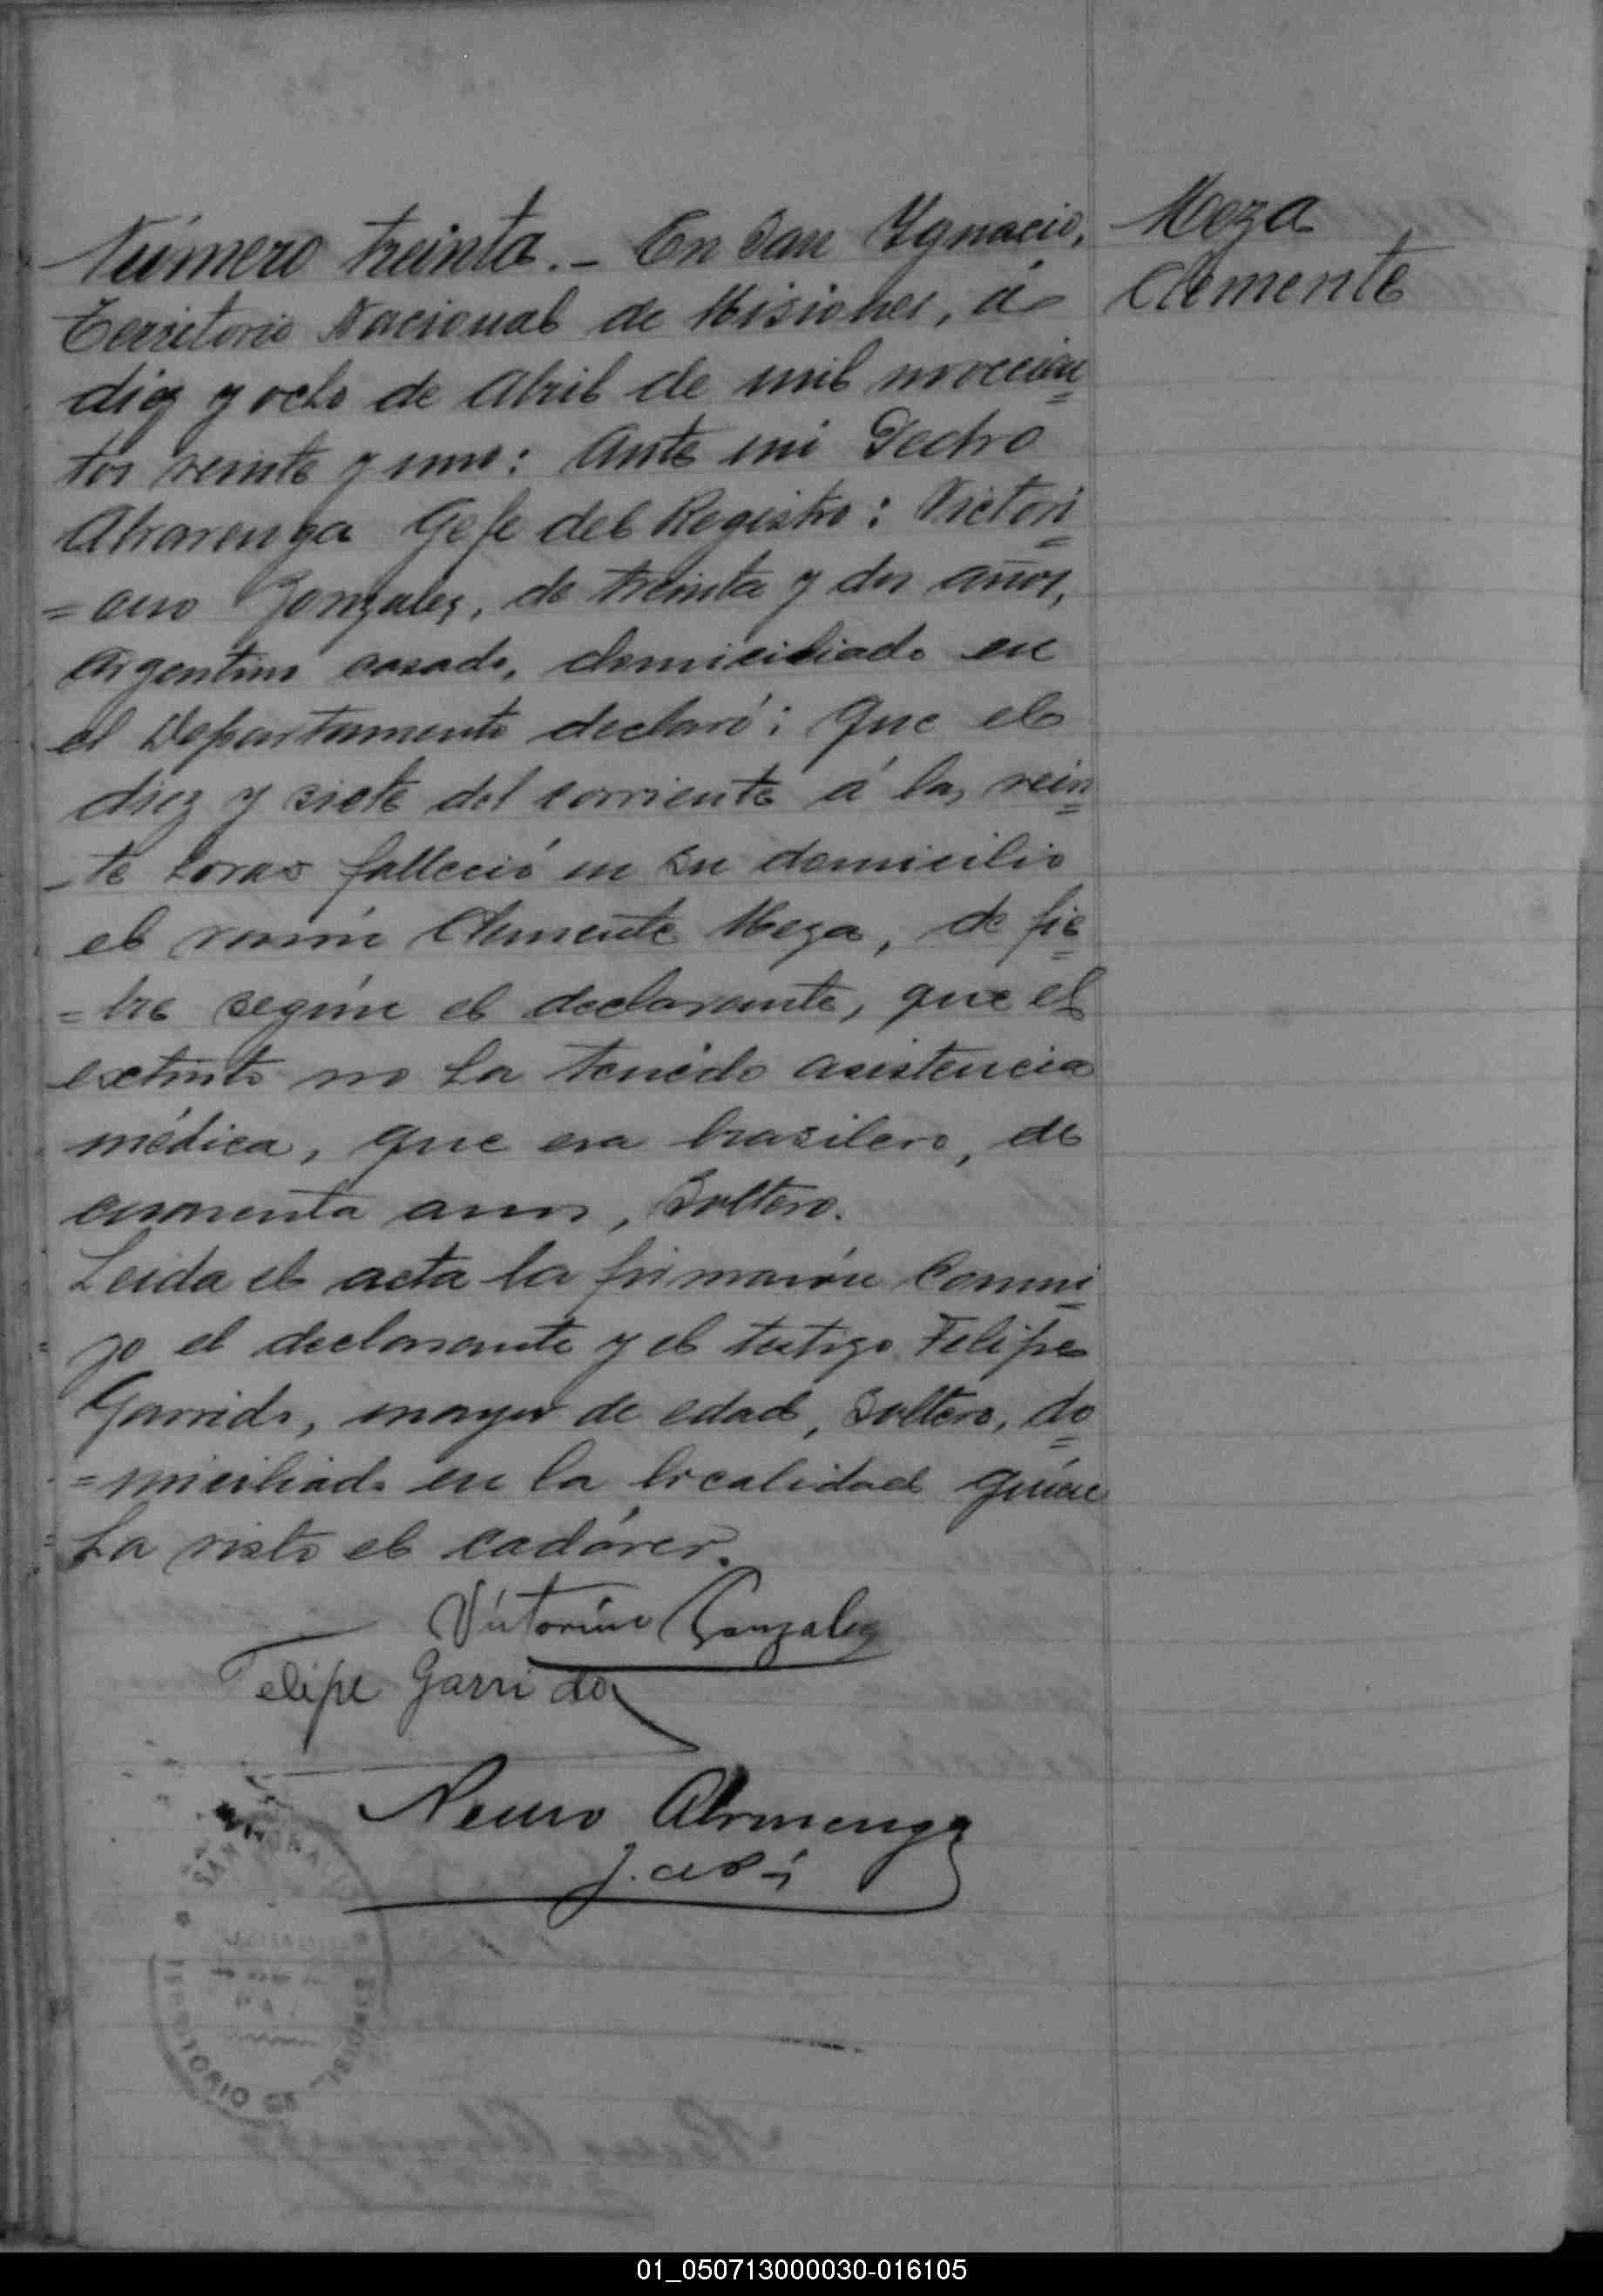 Número treinta.- En San Ygnacio,
Territorio Nacional de Misiones, á
diez y ocho de Abril de mil novecien=
tos veinte y uno: Ante mi Pedro
Alvarenga Gefe del Registro: Victori=
=ano Gonzalez, de treinta y dos años,
Argentino casado, domiciliado en
el Departamento declaró: Que el
diez y siete del corriente á las vein=
-te horas falleció en su domicilio
el varón Clemente Meza, de fie=
=bre según el declarante, que el
extinto no ha tenido asistencia
médica, que era brasilero, de
cuarenta años, Soltero.
Leida el acta la firmarón Conmi=
go el declarante y el testigo Felipe
Garrido, mayor de edad, Soltero, do=
=miciliado en la localidad quien
ha visto el cadáver.
Meza
Clemente
Victorino Gonzalez
Felipe Garrido
Alvarenga
SAN IGNACIO
TERRITORIO DE
01_050713000030-016105